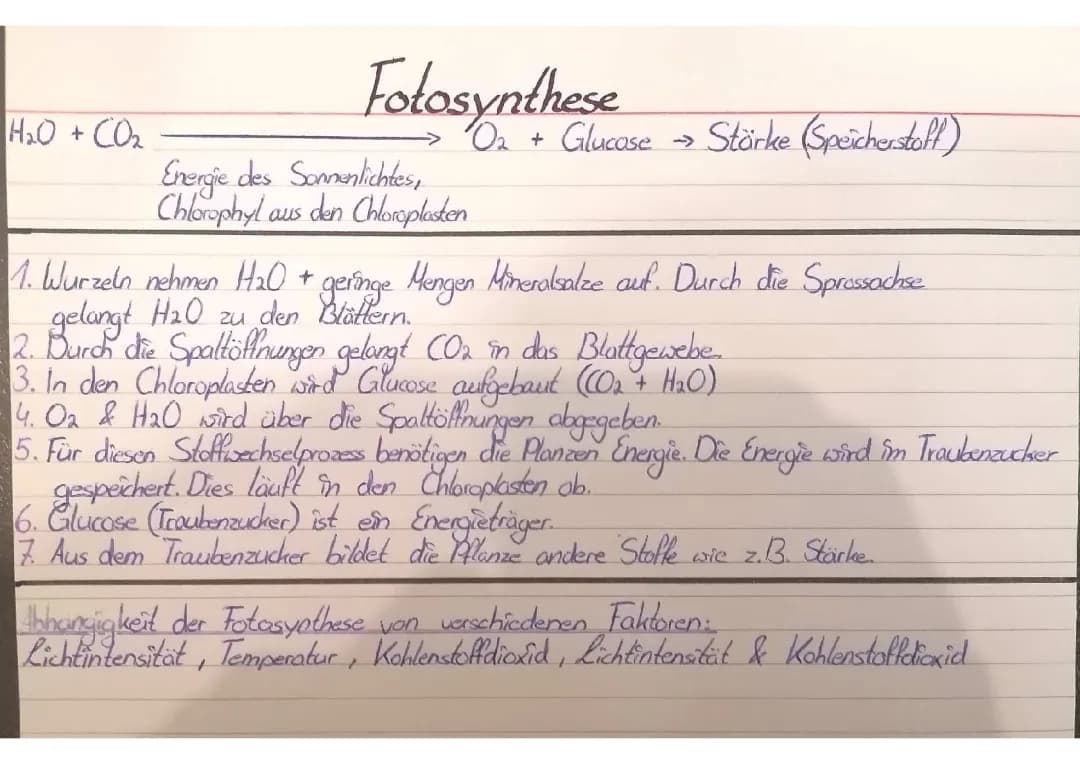 Fotosynthese
H₂O + CO₂ ⟶ O₂ + Glucose → Stärke (Speicherstoff)
Energie des Sonnenlichtes,
Chlorophyl aus den Chloroplasten
1. Wurzeln nehmen H₂O + geringe Mengen Mineralsalze auf. Durch die Sprossachse
gelangt H₂O zu den Blättern.
2. Durch die Spaltöffnungen gelangt CO₂ in das Blattgewebe.
3. In den Chloroplasten wird Glucose aufgebaut (CO₂ + H₂O)
4. O₂ & H₂O wird über die Spaltöffnungen abgegeben.
5. Für diesen Stoffwechselprozess benötigen die Planzen Energie. Die Energie wird im Traubenzucker
gespeichert. Dies läuft in den Chloroplasten ab.
6. Glucose (Traubenzucker) ist ein Energieträger.
7. Aus dem Traubenzucker bildet die Pflanze andere Stoffe wie z.B. Stärke.
Abhängigkeit der Fotosynthese von verschiedenen Faktoren:
Lichtintensität, Temperatur, Kohlenstoffdioxid, Lichtintensität & Kohlenstoffdioxid